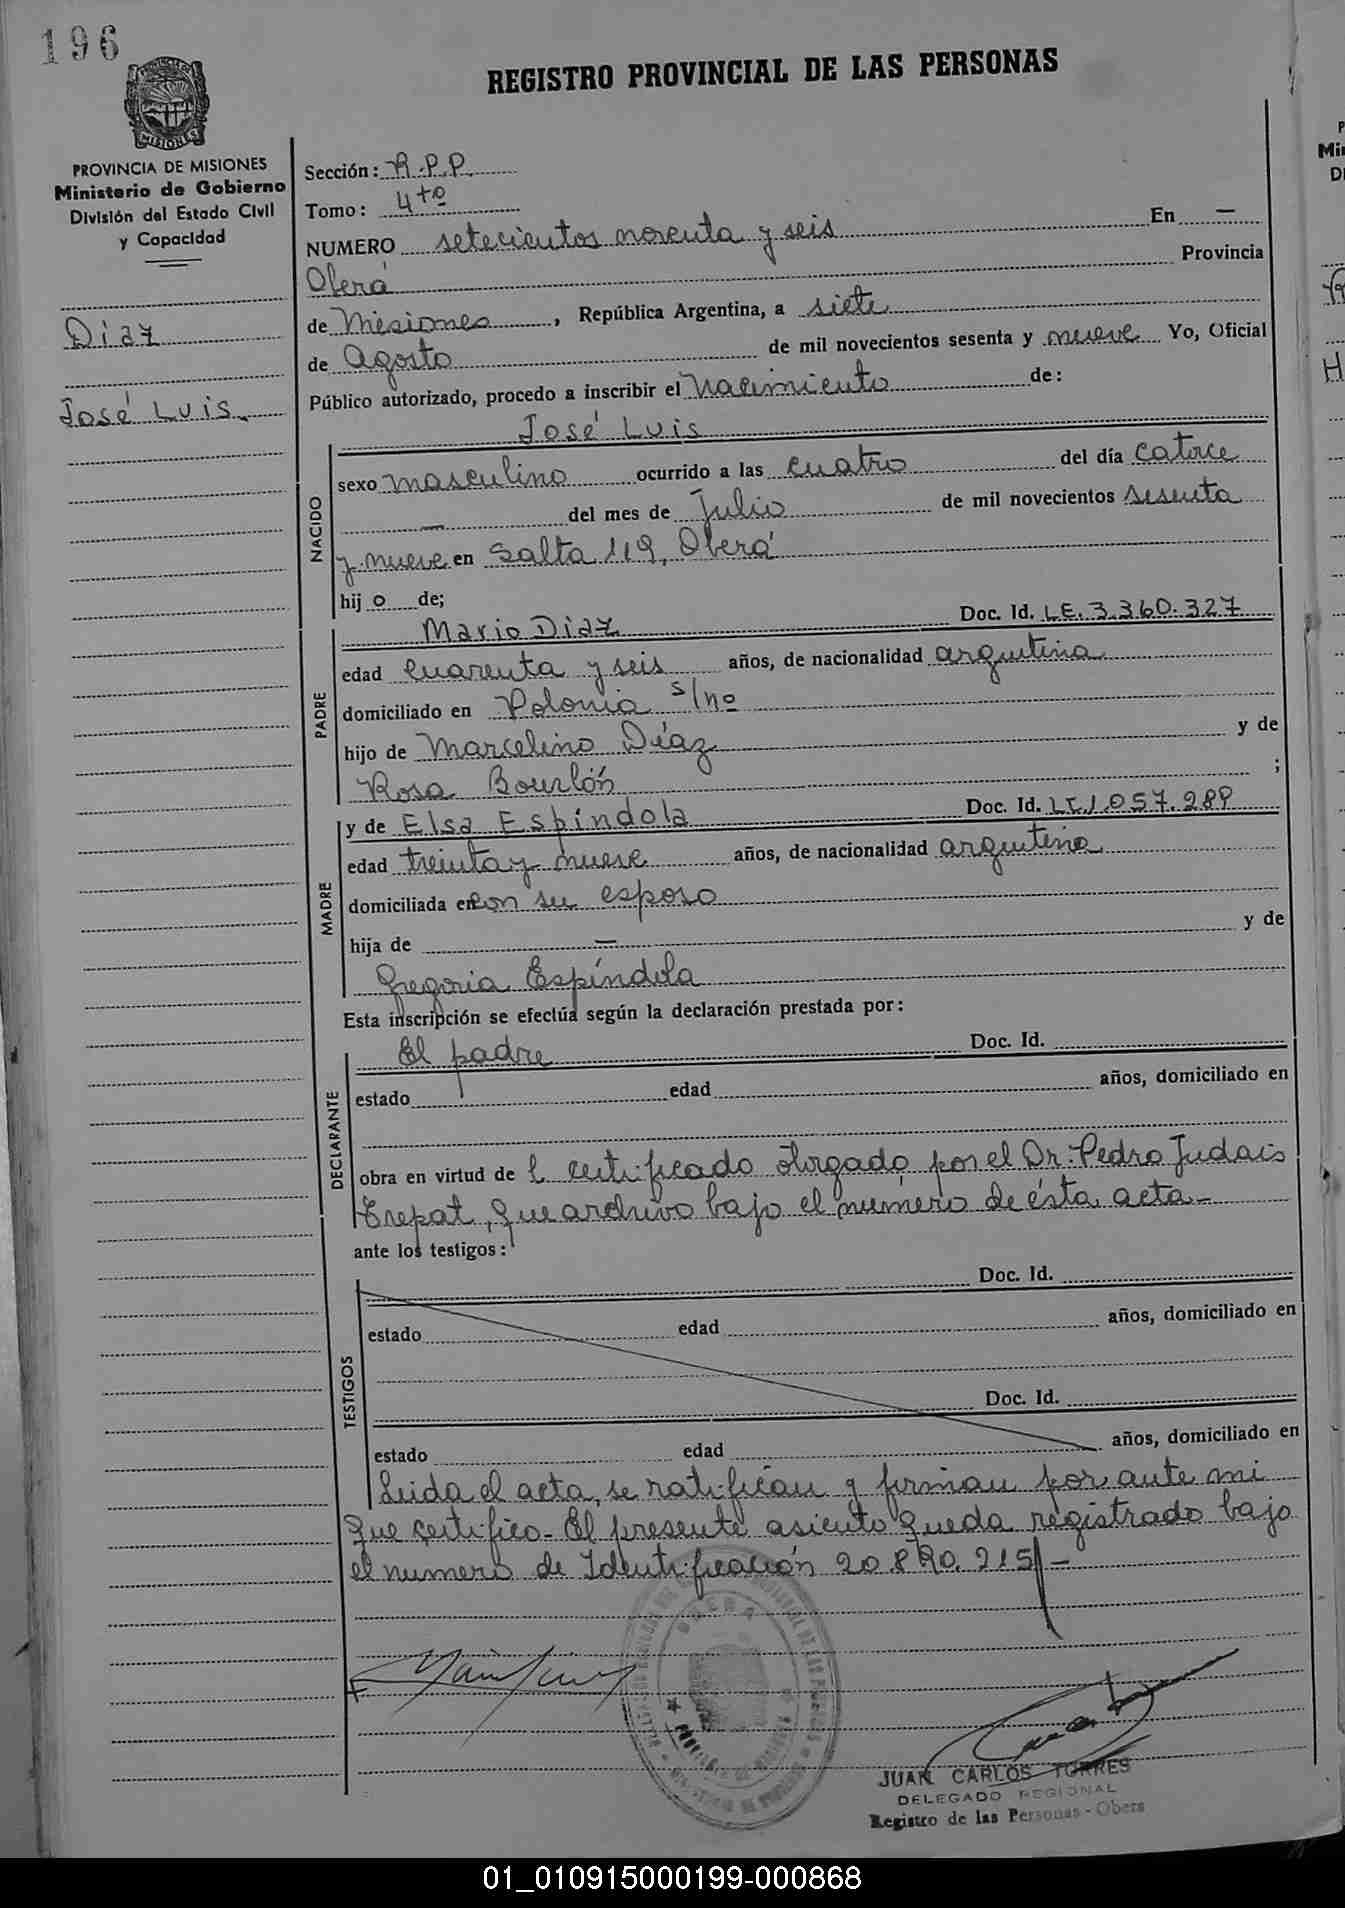 196
REGISTRO PROVINCIAL DE LAS PERSONAS
PROVINCIA DE MISIONES
PROVINCIA DE MISIONES
Ministerio de Gobierno
División del Estado Civil
y Capacidad
Diaz
José Luis
Sección: R.P.P.
Tomo: 4to
NUMERO setecientos noventa y seis En —
Oberá Provincia
de Misiones, República Argentina, a siete
de Agosto de mil novecientos sesenta y nueve Yo, Oficial
Público autorizado, procedo a inscribir el Nacimiento de:
José Luis
NACIDO
sexo masculino ocurrido a las cuatro del día catorce
— del mes de Julio de mil novecientos sesenta
y nueve en Salta 119, Oberá
hijo de;
PADRE
Mario Diaz Doc. Id. LE. 3.360.327
edad cuarenta y seis años, de nacionalidad argentina
domiciliado en Polonia s/no
hijo de Marcelino Díaz y de
Rosa Bourlón ;
MADRE
y de Elsa Espíndola Doc. Id.
edad treinta y nueve años, de nacionalidad argentina
domiciliada en con su esposo
hija de — y de
Gregoria Espíndola
Esta inscripción se efectúa según la declaración prestada por:
DECLARANTE
El padre Doc. Id.
estado edad años, domiciliado en
obra en virtud de l certificado otorgado por el Dr. Pedro Judais
Crepat, que archivo bajo el número de ésta acta—
ante los testigos:
TESTIGOS
Doc. Id.
estado edad años, domiciliado en
Doc. Id.
estado edad años, domiciliado en
Leida el acta, se ratifican y firman por ante mi
que certifico- El presente asiento queda registrado bajo
el numero de Identificación 20.890.215/—
JUAN CARLOS TORRES
DELEGADO REGIONAL
Registro de las Personas - Obera
01_010915000199-000868